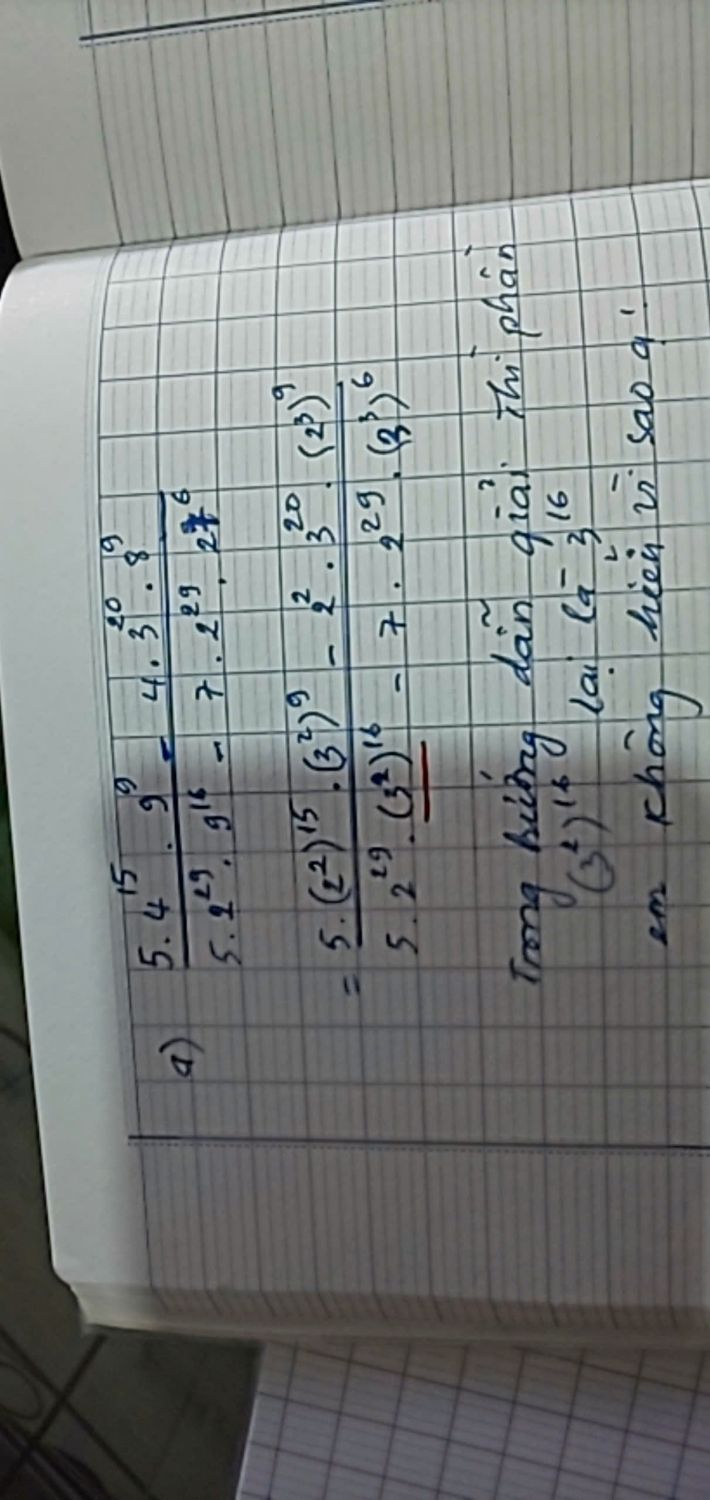 a) \frac{5.4^{15}.9^{9} - 4.3^{20}.8^{9}}{5.2^{29}.9^{16} - 7.2^{29}.27^{6}}
= \frac{5.(2^{2})^{15}.(3^{2})^{9} - 2^{2}.3^{20}.(2^{3})^{9}}{5.2^{29}.(3^{2})^{16} - 7.2^{29}.(3^{3})^{6}}
Trong hướng dẫn giải thì phần
(3^{2})^{16} lại là 3^{16}
em không hiểu vì sao ạ!